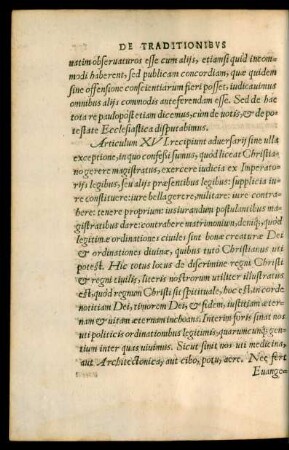 DE TRADITIONIBVS
uatim obseruaturos esse cum alijs, etiansi quid incom-
modi haberent, sed publicam concordiam, quæ quidem
sine offensione conscientiarum fieri posset, iudicauimus
omnibus alijs commodis anteferendam esse. Sed de hac
tota re paulopòst etiam dicemus, cùm de uotis, & de po-
testate Ecclesiastica disputabimus.
Articulum XVI recipiunt aduersarij sine ulla
exceptione, in quo confeßi sumus, quòd liceat Christia-
no gerere magistratus, exercere iudicia ex Imperato-
rijs legibus, seu alijs præsentibus legibus: supplicia iu-
re constituere: iure bella gerere, militare: iure contra-
here: tenere proprium: iusiurandum postulantibus ma-
gistratibus dare: contrahere matrimonium, deniq;, quòd
legitimæ ordinationes ciuiles sint bonæ creaturæ Dei
& ordinationes diuinæ, quibus tutò Christianus uti
potest. Hic totus locus de discrimine regni Christi
& regni ciuilis, literis nostrorum utiliter illustratus
est, quòd regnum Christi sit spirituale, hoc est in corde
noticiam Dei, timorem Dei, & fidem, iustitiam æter-
nam & uitam æternam inchoans. Interim foris sinat nos
uti politicis ordinationibus legitimis, quarumcunq; gen-
tium inter quas uiuimus. Sicut sinit nos uti medicina,
aut Architectonica, aut cibo, potu, aere. Nec fert
Euange-